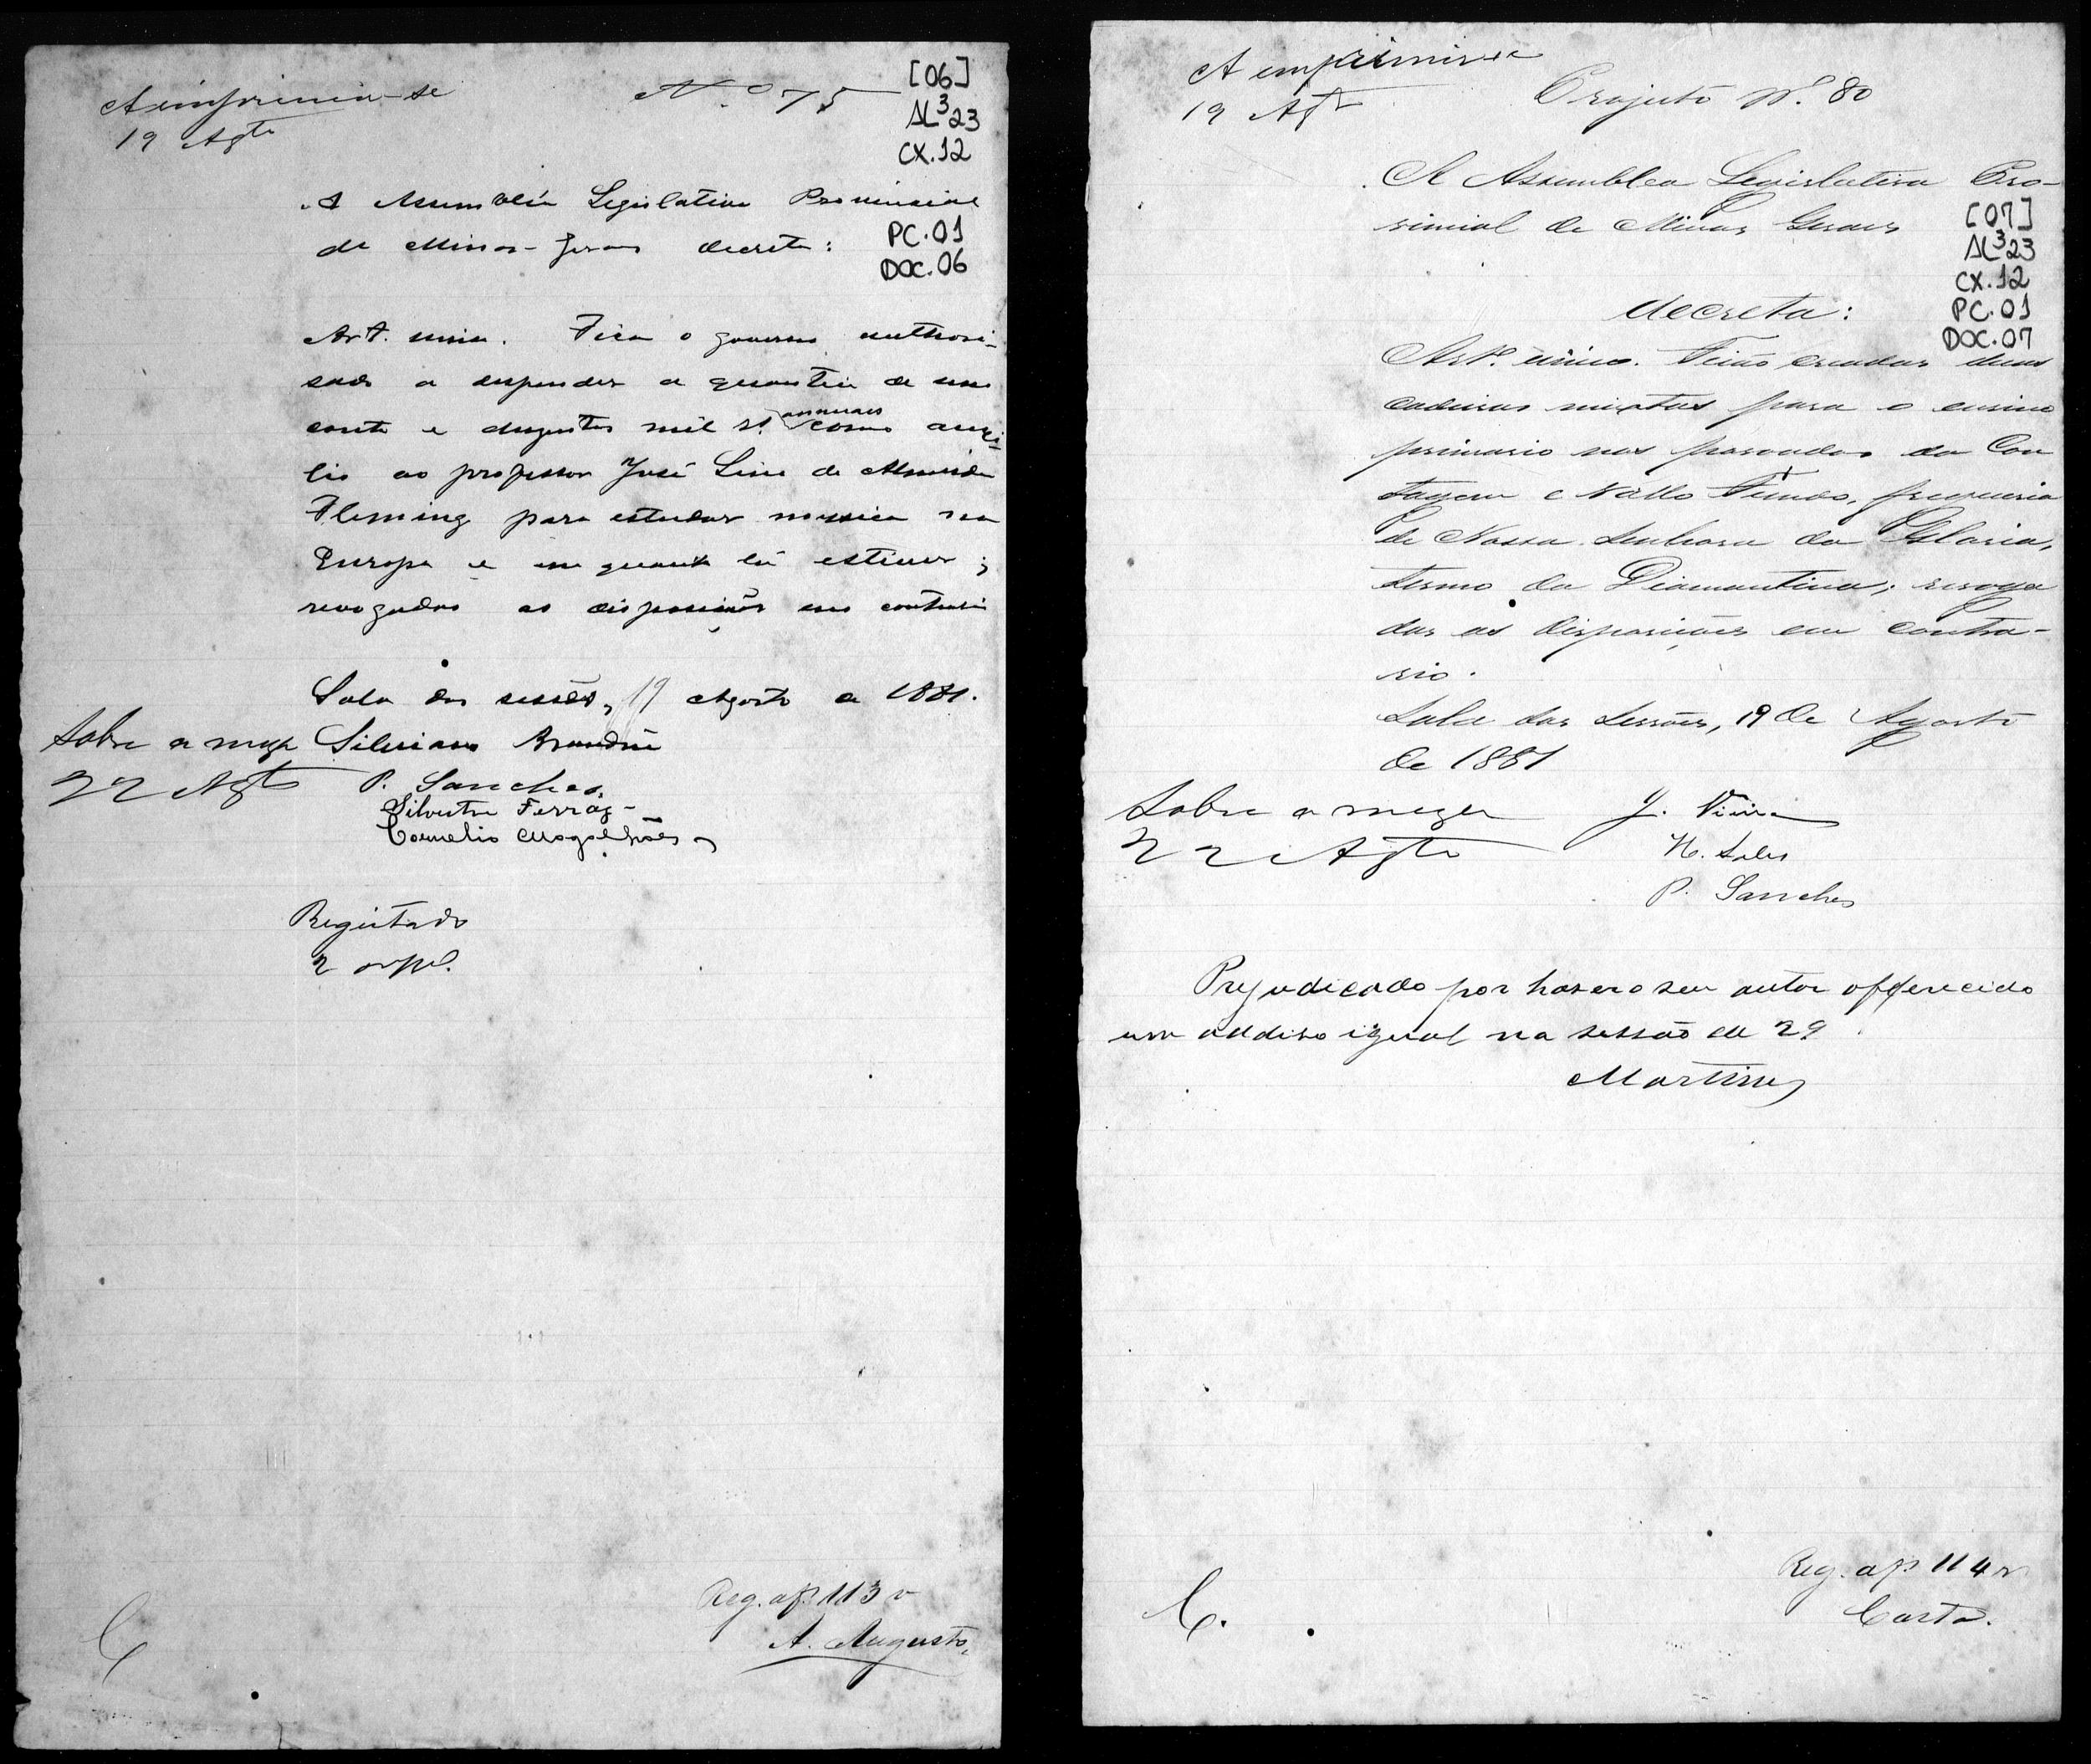 A imprimir-se
19 Agto
N.o 75
[06]
AL³23
CX.12
PC.01
DOC.06
A Assembléa Legislativa Provincial
de Minas-Geraes decreta:
Art. unico. Fica o governo authori-
sado a despender a quantia de um
conto e dusentos mil rs. annuaes como auxi-
lio ao professor José Lino de Almeida
Fleming para estudar musica na
Europa e em quanto lá estiver;
revogadas as disposições em contrario
Sala das sessões, 19 Agosto de 1881.
Silviano Brandão
P. Sanches.
Silvestre Ferraz-
Cornelio Magalhães
Sobre a meza
22 Agto
Registado
Reg. a fl. 113 v
A. Augusto.
A imprimir-se
19 Agto
Projecto Nº. 80
[07]
AL³23
CX.12
PC.01
DOC.07
A Assemblea Legislativa Pro-
vincial de Minas Geraes
decreta:
Artº. unico. Ficão creadas duas
cadeiras mixtas para o ensino
primario nos povoados da Con
tagem e Vallo Fundo, freguesia
de Nossa Senhora da Gloria,
termo da Diamantina; revoga
das as disposições em contra-
rio.
Sala das Sessões, 19 de Agosto
de 1881
J. Vieira
H. Salles
P. Sanches
Sobre a meza
22 Agto
Prejudicado por haver o seu autor offerecido
um additivo igual na sessão de 29.
Martins
Reg. a fl 114 v
Costa.
C.